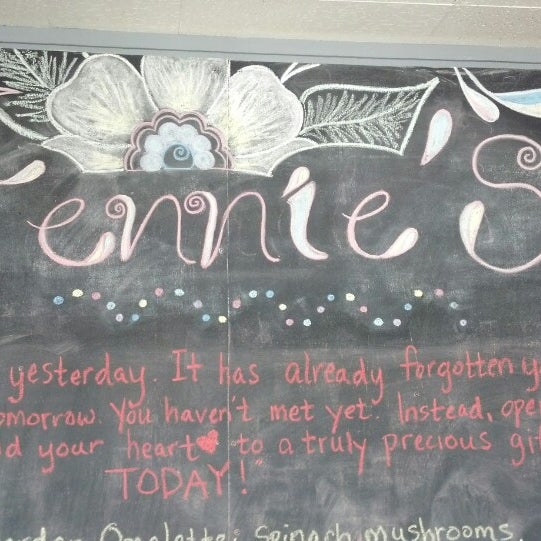 ennie's
yesterday. It has already forgotten y
omorrow. You haven't met yet. Instead, ope
d your heart to a truly precious gif
TODAY!"
Omelette: Spinach, mushrooms,